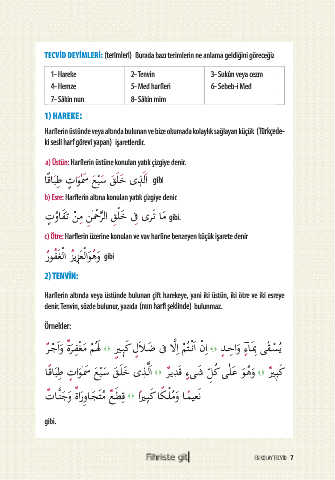 TECVİD DEYİMLERİ: (terimleri) Burada bazı terimlerin ne anlama geldiğini göreceğiz
1- Hareke 2- Tenvin 3- Sukûn veya cezm
4- Hemze 5- Med harfleri 6- Sebeb-i Med
7- Sâkin nun 8- Sâkin mim
1) HAREKE:
Harflerin üstünde veya altında bulunan ve bize okumada kolaylık sağlayan küçük (Türkçede-
ki sesli harf görevi yapan) işaretlerdir.
a) Üstün: Harflerin üstüne konulan yatık çizgiye denir.
اَلَّذِى خَلَقَ سَبْعَ سَمٰوَاتٍ طِبَاقًا gibi
b) Esre: Harflerin altına konulan yatık çizgiye denir.
مَا تَرٰى فِى خَلْقِ الرَّحْمٰنِ مِنْ تَفَاوُتٍ gibi.
c) Ötre: Harflerin üzerine konulan ve vav harfine benzeyen küçük işarete denir
وَهُوَالْعَزِيزُ الْغَفُورُ gibi
2) TENVİN:
Harflerin altında veya üstünde bulunan çift harekeye, yani iki üstün, iki ötre ve iki esreye
denir. Tenvin, sözde bulunur, yazıda (nun harfi şeklinde) bulunmaz.
Örnekler:
يُسْقٰى بِمَاءٍ وَاحِدٍ ‹› اِنْ اَنْتُمْ اِلَّا فِى ضَلَالٍ كَبِيرٍ ‹› لَهُمْ مَغْفِرَةٌ وَاَجْرٌ
كَبِيرٌ ‹› وَهُوَ عَلٰى كُلِّ شَىْءٍ قَدِيرٌ ‹› اَلَّذِى خَلَقَ سَبْعَ سَمٰوَاتٍ طِبَاقًا
نَعِيمًا وَمُلْكًا كَبِيرًا ‹› قِطَعٌ مُتَجَاوِرَاتٌ وَجَنَّاتٌ
gibi.
Fihriste git
7